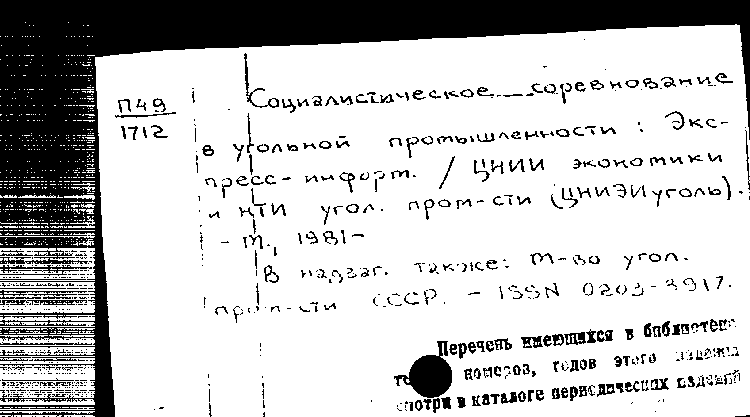 П49
1712
Социалистическое соревнование
в угольной промышленности : Экс-
пресс-информ. / ЦНИИ экономики
и НТИ угол. пром-сти (ЦНИЭИуголь).
- М., 1981-
В надзаг. также: М-во угол.
пром-сти СССР. - ISSN 0203-3917.
Перечень имеющихся в библиотеке
номеров, годов этого издания
смотри в каталоге периодических изданий